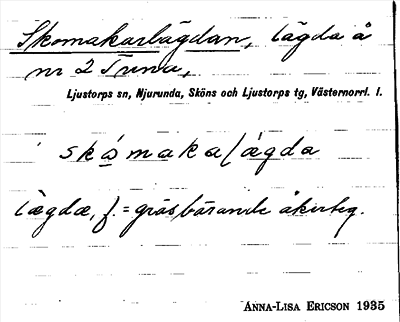 Skomakarlägdan, lägda å
nr 2 Tuna,
Ljustorps sn, Njurunda, Sköns och Ljustorps tg, Västernorrl. l.
skómakalägda
lägda, f. = gräsbärande åkerteg.
ANNA-LISA ERICSON 1935